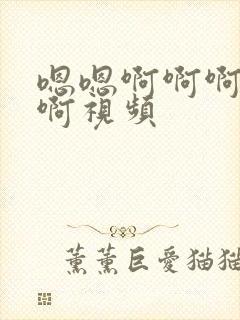 嗯嗯啊啊啊
啊視頻
薰薰巨愛猫猫